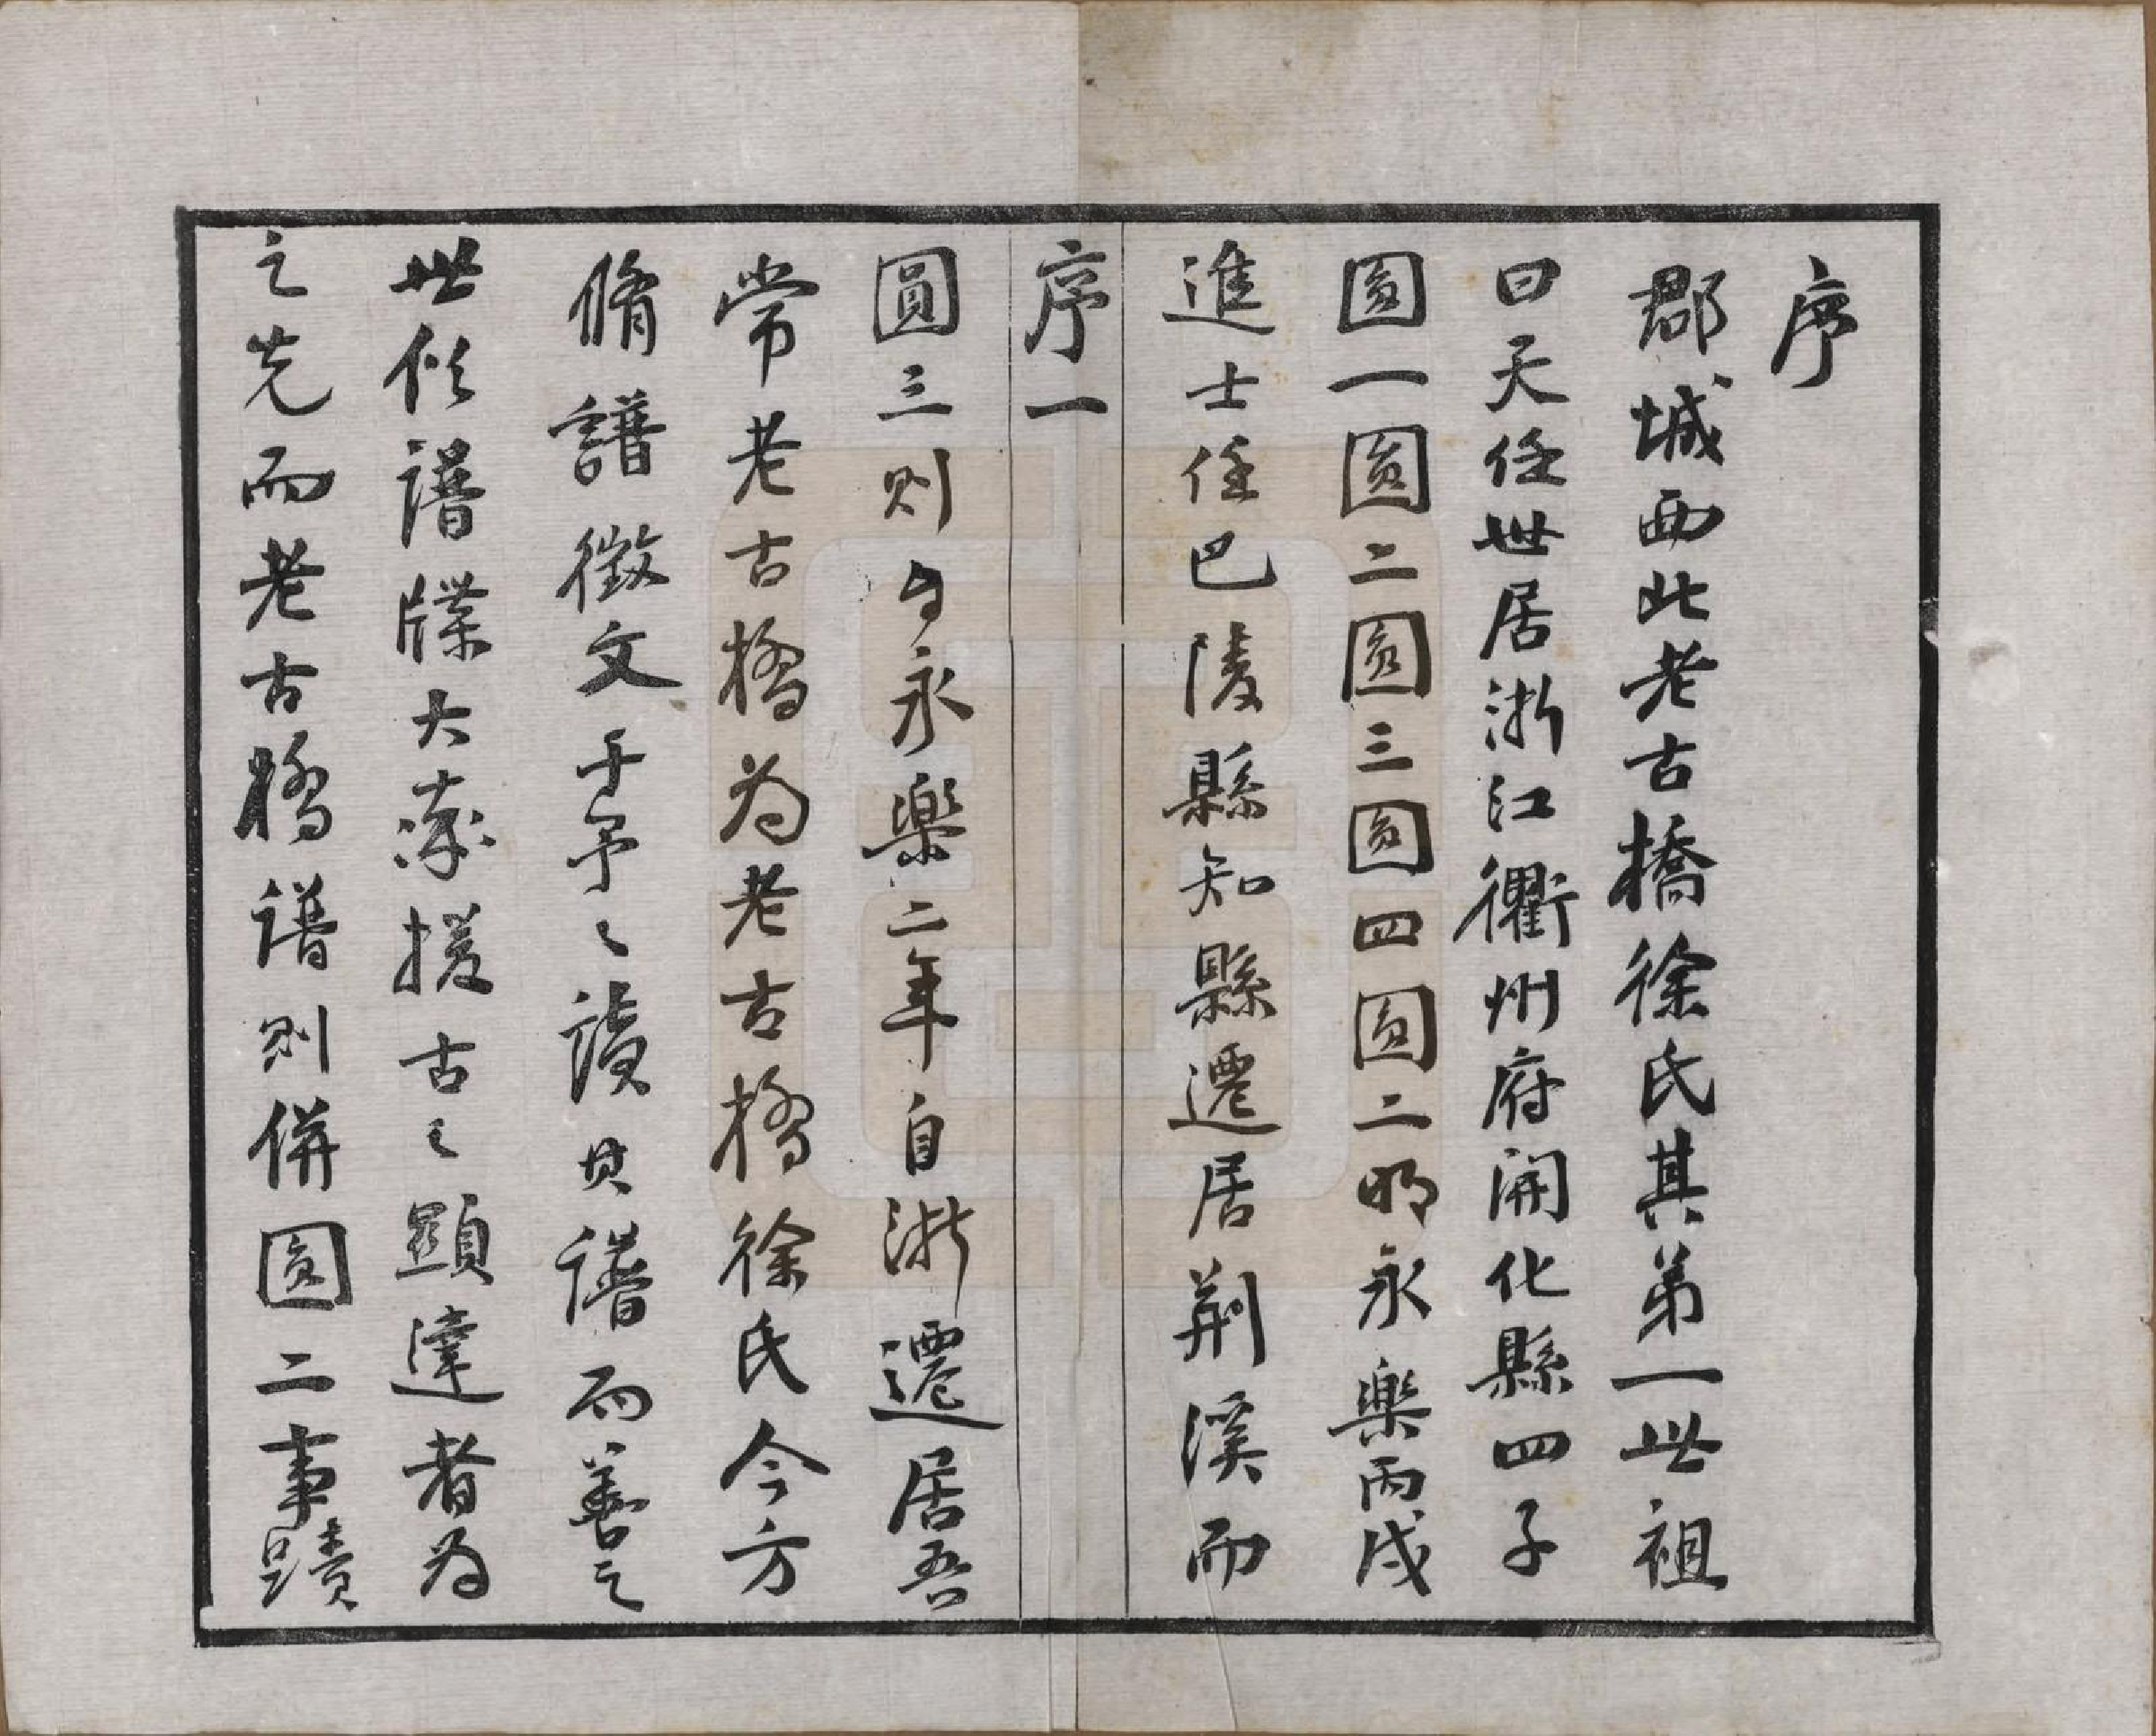 序
郡城西北老古橋徐氏其弟一世祖
曰天任世居浙江衢州府開化縣四子
圓一圓二圓三圓四圓二明永樂丙戌
進士任巴陵縣知縣遷居荆溪而
序一
圓三則自永樂二年自浙遷居吾
常老古橋为老古橋徐氏今方
脩譜徵文于予〻讀其譜而善之
世俗譜牒大率援古之顯達者为
之先而老古橋譜則併圓二事蹟